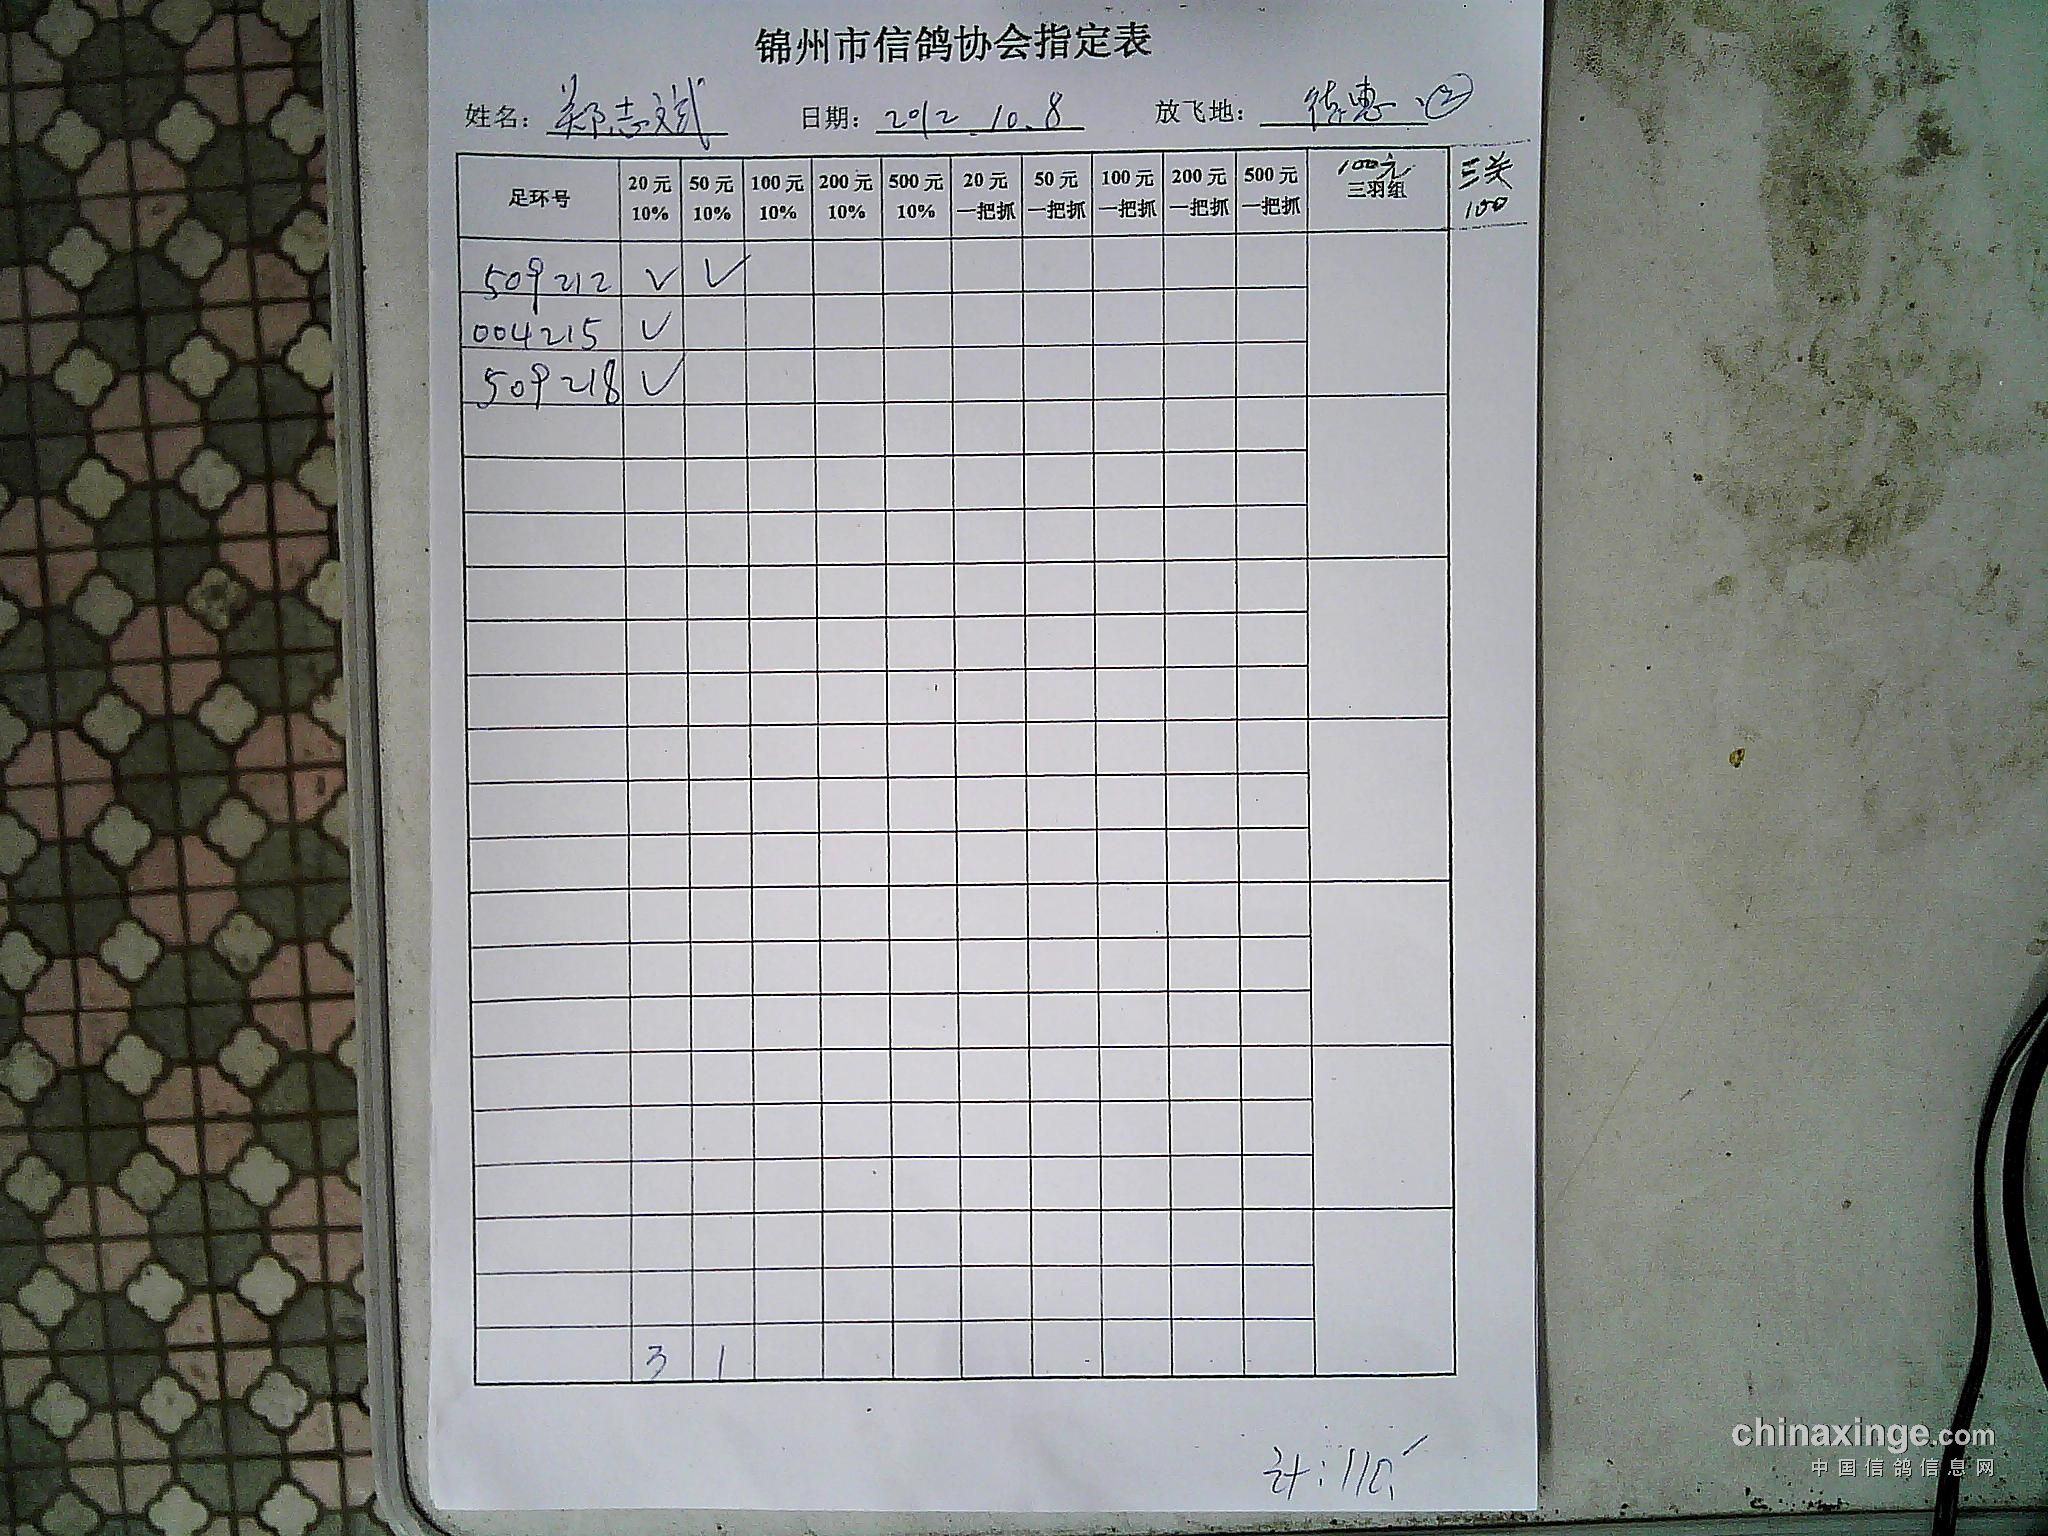 锦州市信鸽协会指定表
姓名: 郑志斌 日期: 2012.10.8 放飞地: 德惠 ②
足环号 20元 10% 50元 10% 100元 10% 200元 10% 500元 10% 20元 一把抓 50元 一把抓 100元 一把抓 200元 一把抓 500元 一把抓 100元 三羽组 三关 100
509212 ✓ ✓
004215 ✓
509218 ✓
3 1
计:110
chinaxinge.com
中国信鸽信息网